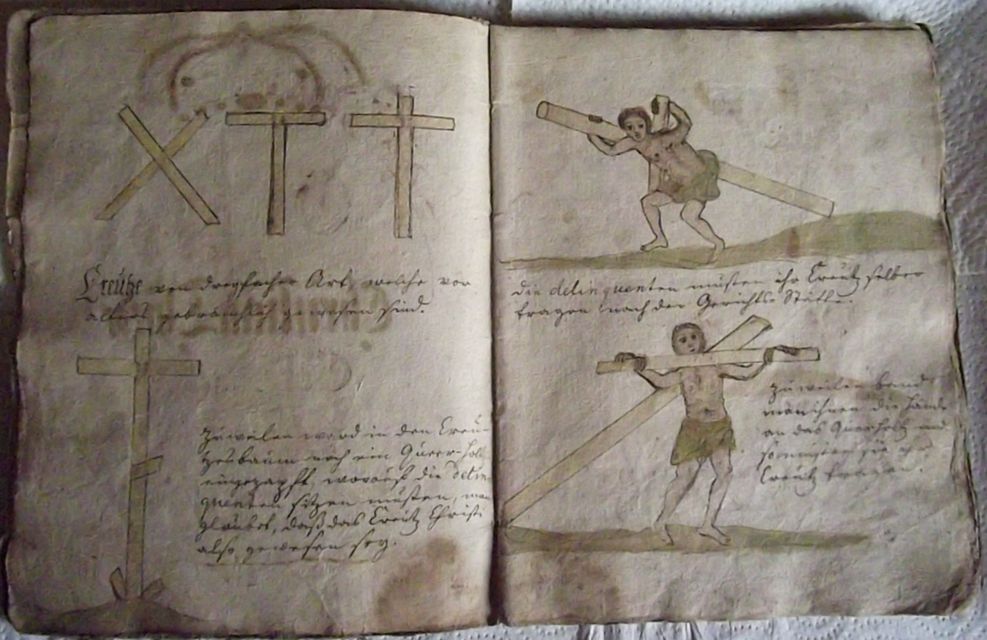 Creütze von dreyfacher Art, welche vor
alters gebräuchlich gewesen sind.
Zuweilen ward in den Creü-
tzesbaum noch ein Queer-holtz
eingezapft, worauf die delin-
quenten sitzen müsten, man
glaubet, daß das Creütz Christi
also gewesen sey.
die delinquenten müsten ihr Creütz selber
tragen nach der Gerichts Stätte.
Zuweilen band
man ihnen die Hände
an das Queerholtz und
so musten sie ihr
Creütz tragen.